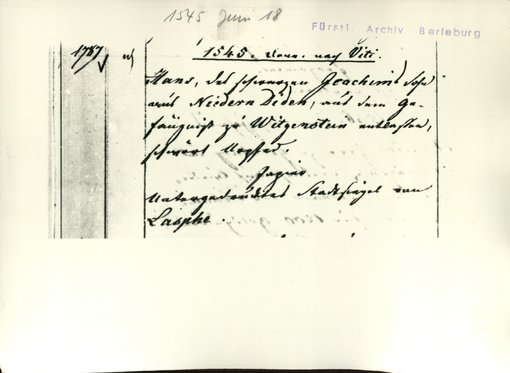 1545 Juni 18
Fürstl. Archiv Berleburg
1787 1545. Donn. nach Viti.
Hans, des schwarzen Joachims Sohn
aus Niedern Dieden, aus dem Ge-
fängniß zu Witgenstein entlassen,
schwört Urfehd.
Papier
Untergedrucktes Stadtsiegel von
Lasphe.